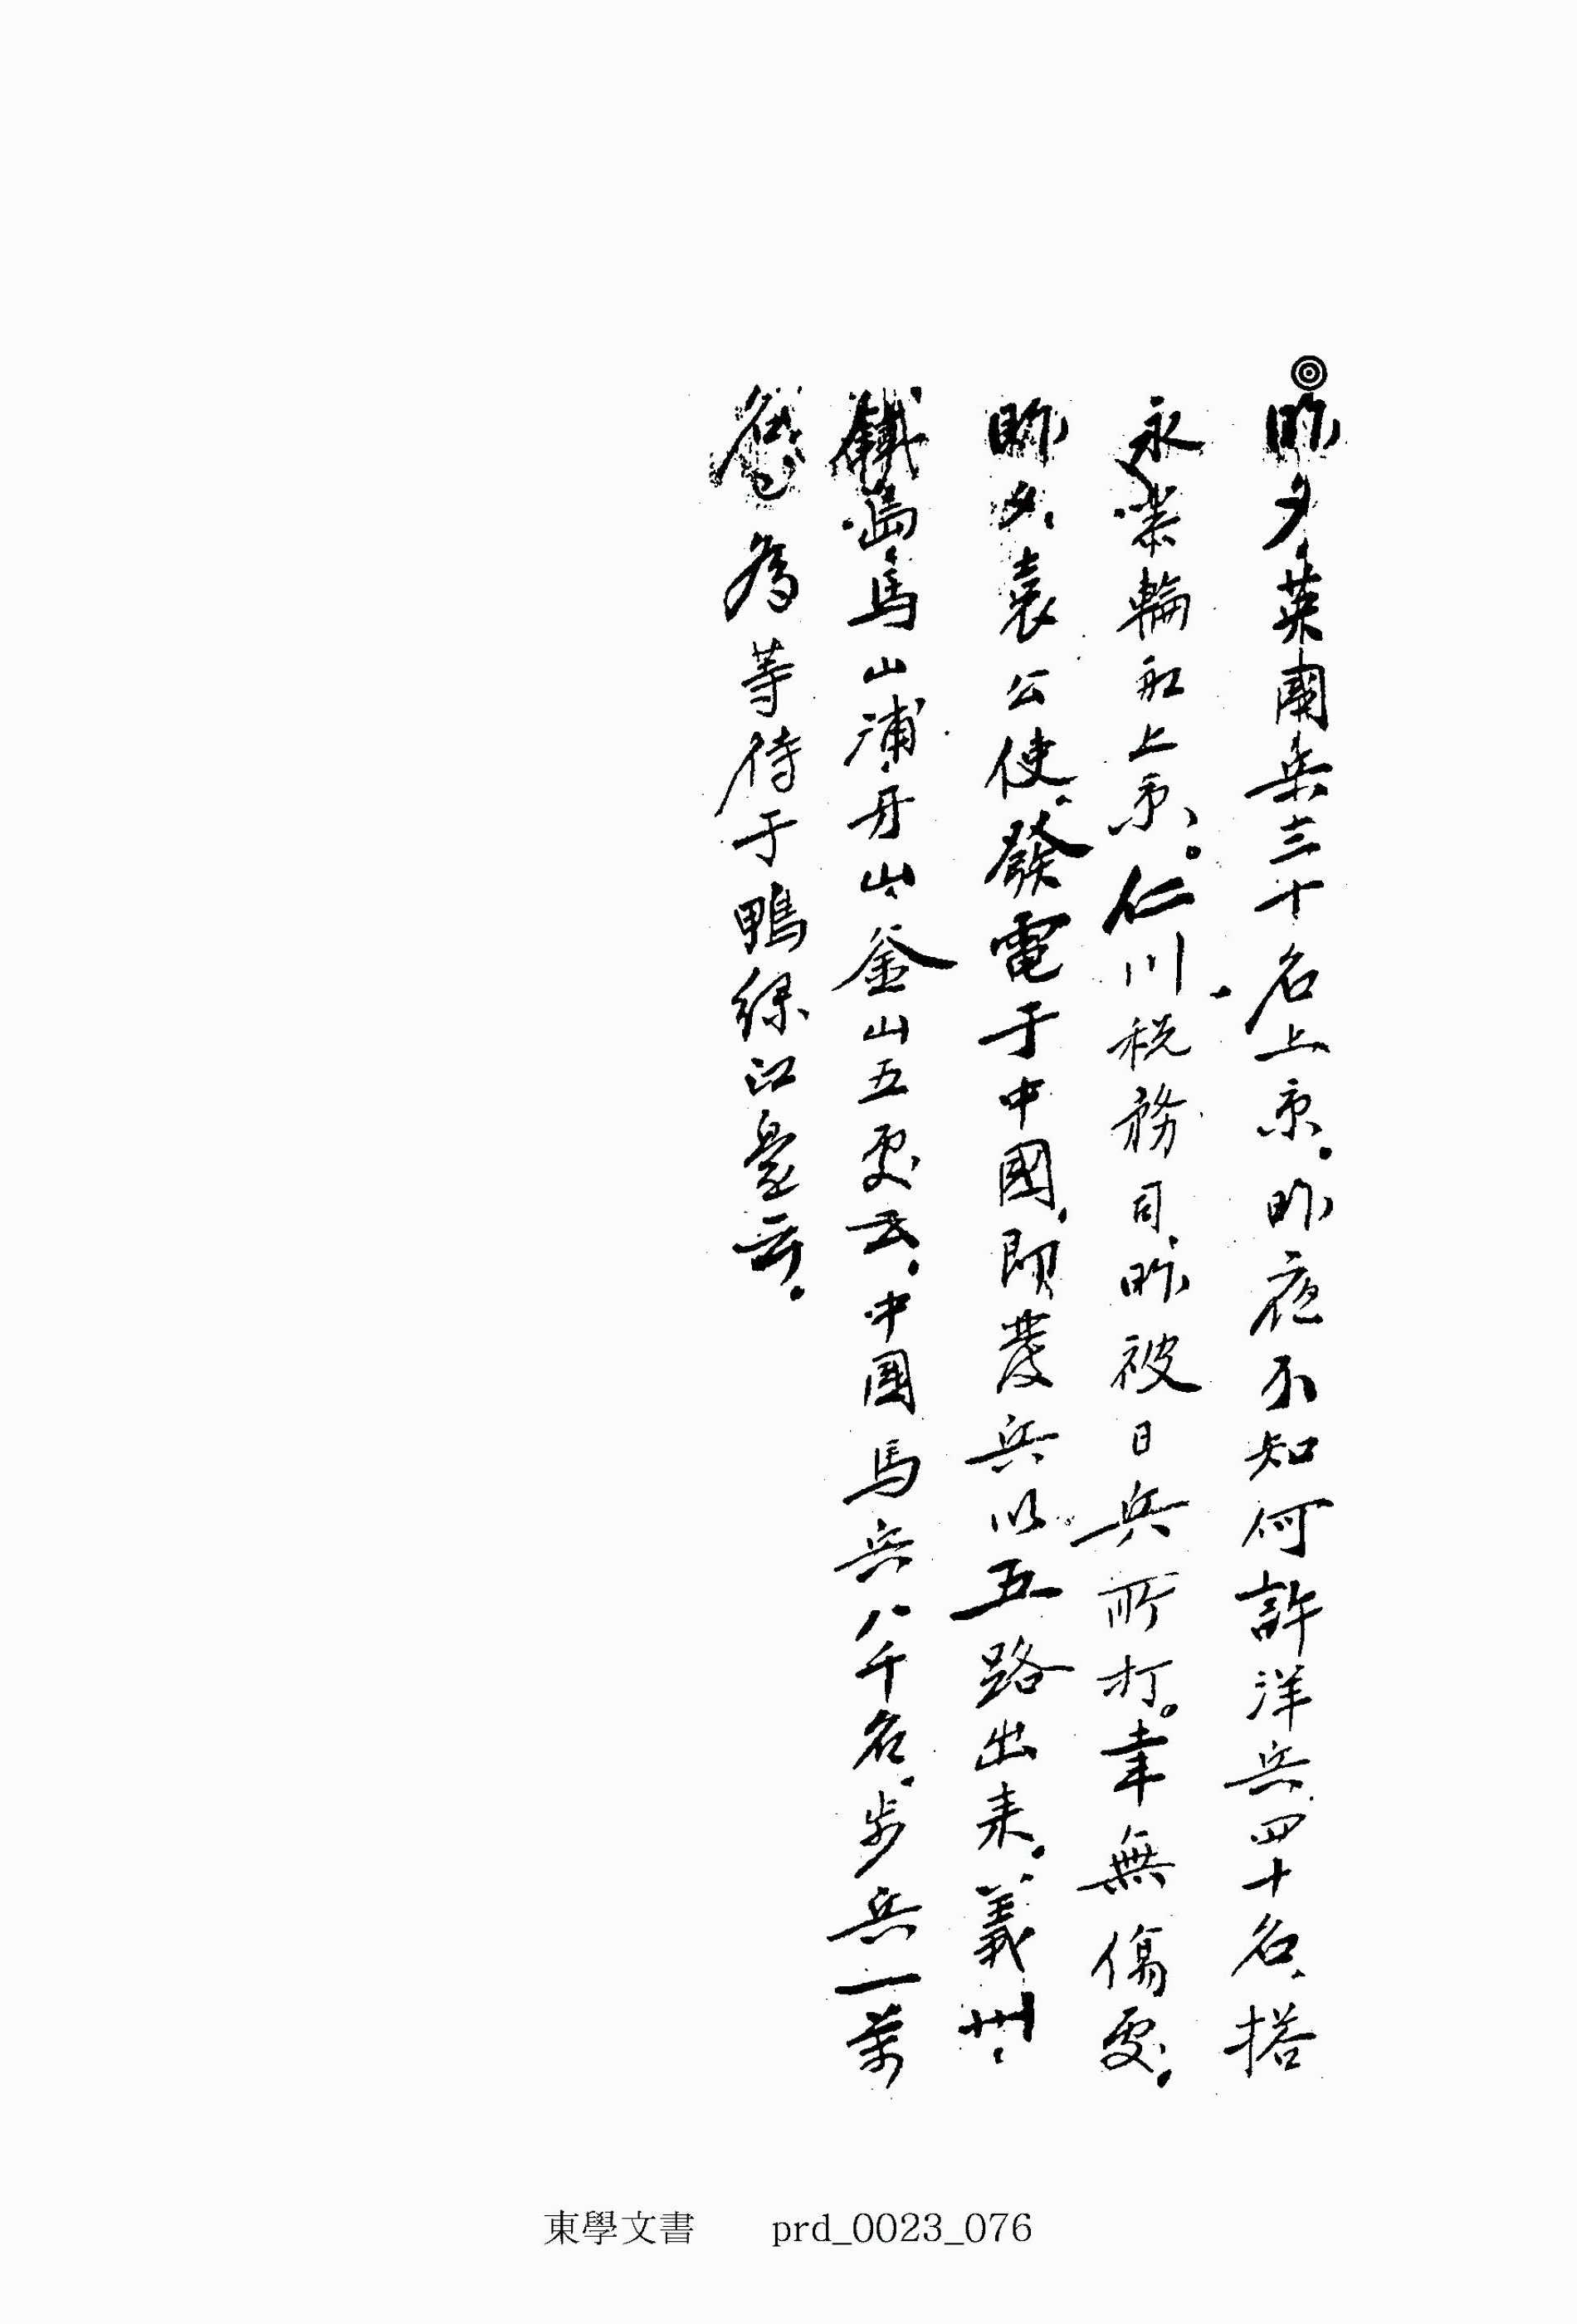 ◎昨夕、英國兵三十名上京。昨夜不知何許洋兵四十名、搭
永業輪舡上京。仁川稅務司、昨被日兵所打。幸無傷處。
昨夕、袁公使、發電于中國、卽發兵以五路出来。義州、
鐵島、馬山浦、牙山、釜山五處云、中國馬兵八千名、步兵一萬
名 爲等待于鴨綠江邊云。
東學文書 prd_0023_076